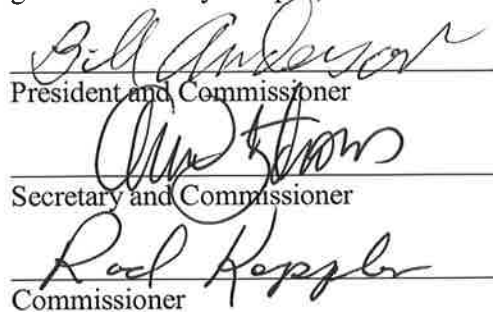 Bill Anderson
President and Commissioner
Secretary and Commissioner
Rod Keppler
Commissioner